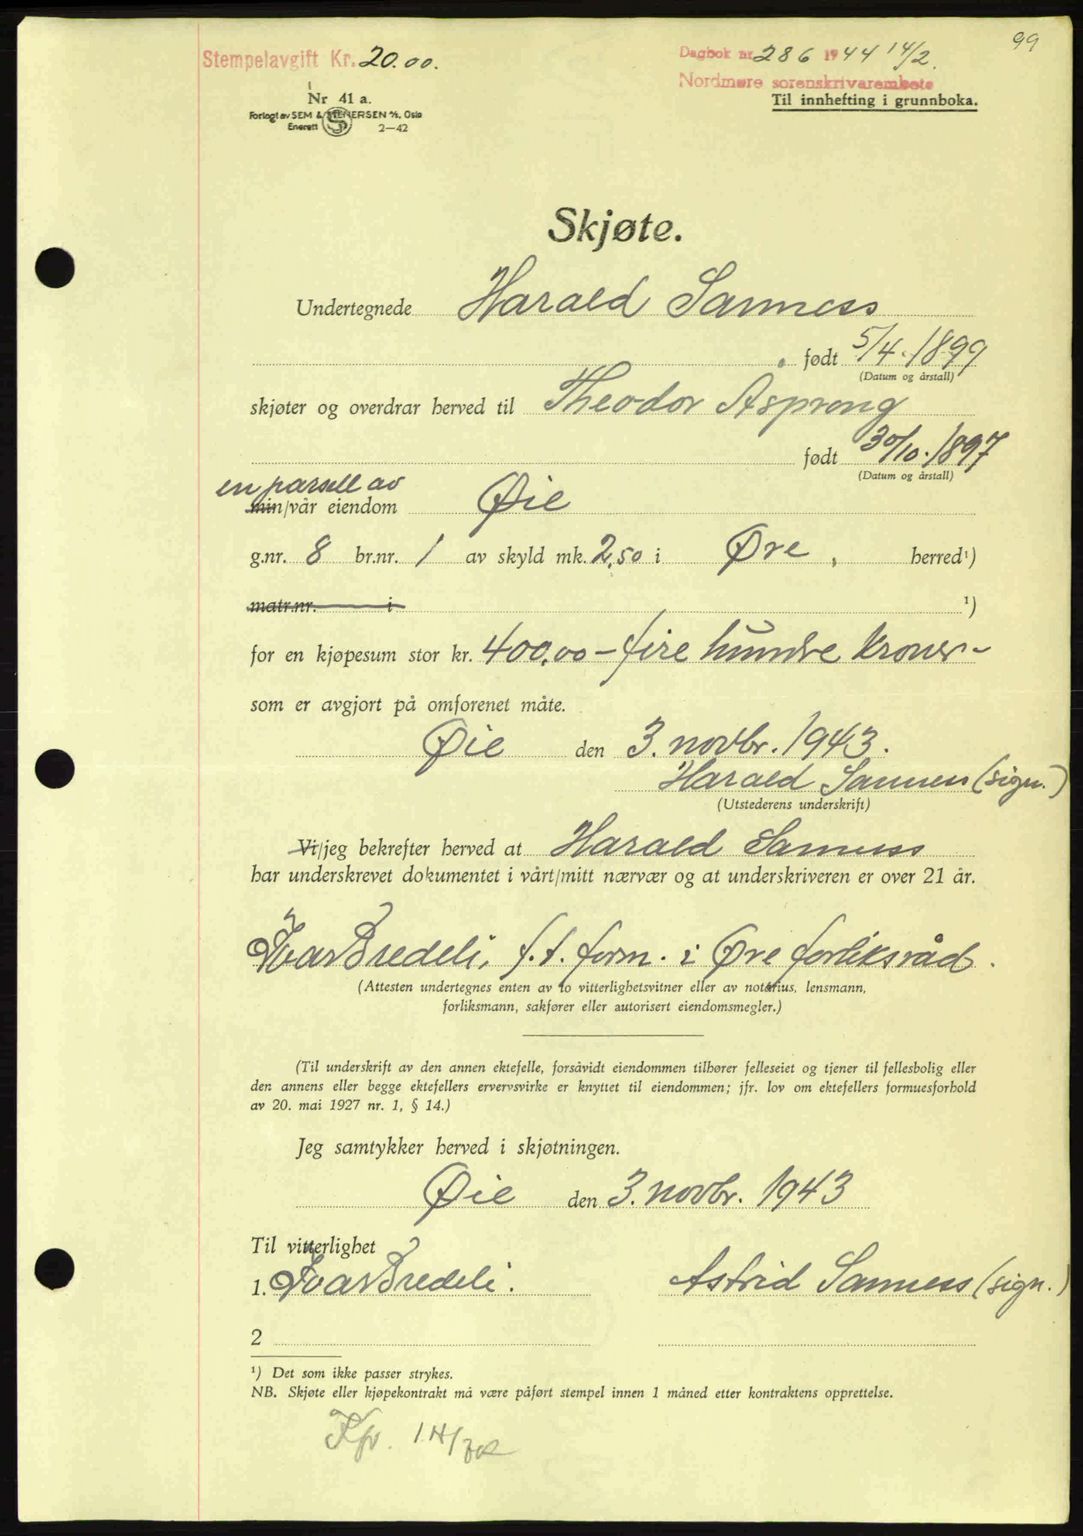 99
Stempelavgift Kr. 20.00.
Dagbok nr. 286 1944 14/2.
Nordmøre sorenskrivarembete
Til innhefting i grunnboka.
Nr 41 a.
Forlagt av SEM & STENERSEN A/S, Oslo
Enerett 2–42
Skjøte.
Undertegnede Harald Sanness
født 5/4. 1899
(Datum og årstall)
skjøter og overdrar herved til Theodor Asprong
født 30/10. 1897
(Datum og årstall)
en parsell av
min/vår eiendom Øie
g.nr. 8 br.nr. 1 av skyld mk. 2,50 i Øre, herred¹)
matr.nr. i ¹)
for en kjøpesum stor kr. 400.00 – fire hundre kroner –
som er avgjort på omforenet måte.
Øie den 3. novbr. 1943.
Harald Sanness (sign.)
(Utstederens underskrift)
Vi/jeg bekrefter herved at Harald Sanness
har underskrevet dokumentet i vårt/mitt nærvær og at underskriveren er over 21 år.
Ivar Bredeli, f.t. form. i Øre forliksråd.
(Attesten undertegnes enten av to vitterlighetsvitner eller av notarius, lensmann,
forliksmann, sakfører eller autorisert eiendomsmegler.)
(Til underskrift av den annen ektefelle, forsåvidt eiendommen tilhører felleseiet og tjener til fellesbolig eller
den annens eller begge ektefellers ervervsvirke er knyttet til eiendommen; jfr. lov om ektefellers formuesforhold
av 20. mai 1927 nr. 1, § 14.)
Jeg samtykker herved i skjøtningen.
Øie den 3. novbr. 1943
Til vitterlighet
1. Ivar Bredeli. Astrid Sanness (sign.)
2
¹) Det som ikke passer strykes.
NB. Skjøte eller kjøpekontrakt må være påført stempel innen 1 måned etter kontraktens opprettelse.